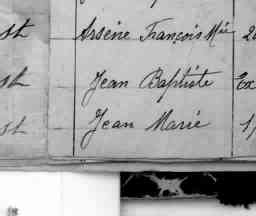 st Arsène François Mie 2
st Jean Baptiste Ex
st Jean Marie 1,